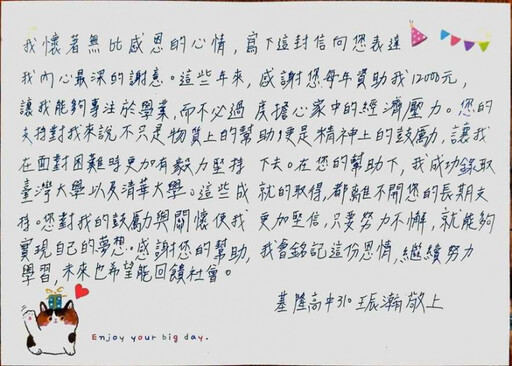 我懷著無比感恩的心情，寫下這封信向您表達
我內心最深的謝意。這些年來，感謝您每年資助我12000元，
讓我能夠專注於學業，而不必過度擔心家中的經濟壓力。您的
支持對我來說不只是物質上的幫助，更是精神上的鼓勵，讓我
在面對困難時更加有毅力堅持下去。在您的幫助下，我成功錄取
臺灣大學以及清華大學。這些成就的取得，都離不開您的長期支
持。您對我的鼓勵與關懷使我更加堅信，只要努力不懈，就能夠
實現自己的夢想。感謝您的幫助，我會銘記這份恩情，繼續努力
學習，未來也希望能回饋社會。
基隆高中310 王振瀚敬上
Enjoy your big day.